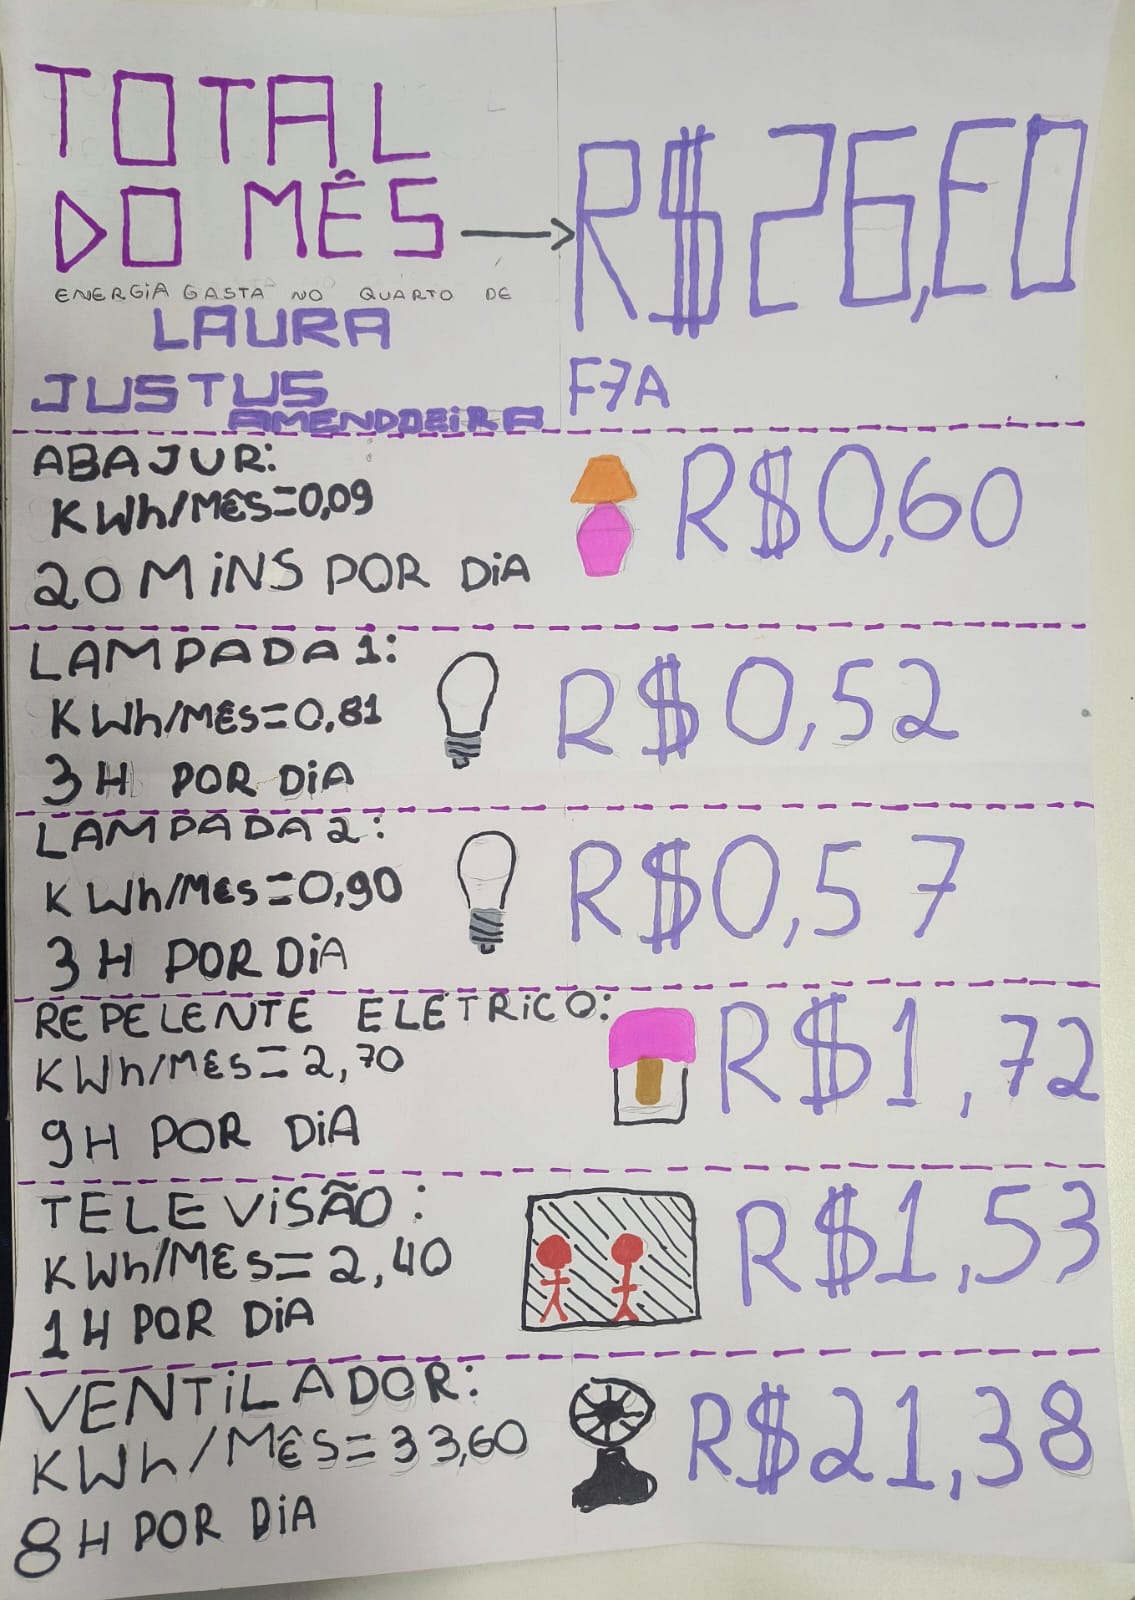 TOTAL
DO MÊS
R$26,E0
ENERGIA GASTA NO QUARTO DE
LAURA
JUSTUS
AMENDOEIRA
F7A
ABAJUR:
KWh/MÊS=0,09
20 MiNS POR DiA
R$0,60
LAMPADA 1:
KWh/MÊS=0,81
3H POR DiA
R$0,52
LAMPADA 2:
KWh/MÊS=0,90
3H POR DiA
R$0,57
REPELENTE ELETRiCO:
KWh/MÊS=2,70
9H POR DiA
R$1,72
TELEViSÃO:
KWh/MÊS=2,40
1H POR DiA
R$1,53
VENTiLADOR:
KWh/MÊS=33,60
8H POR DiA
R$21,38